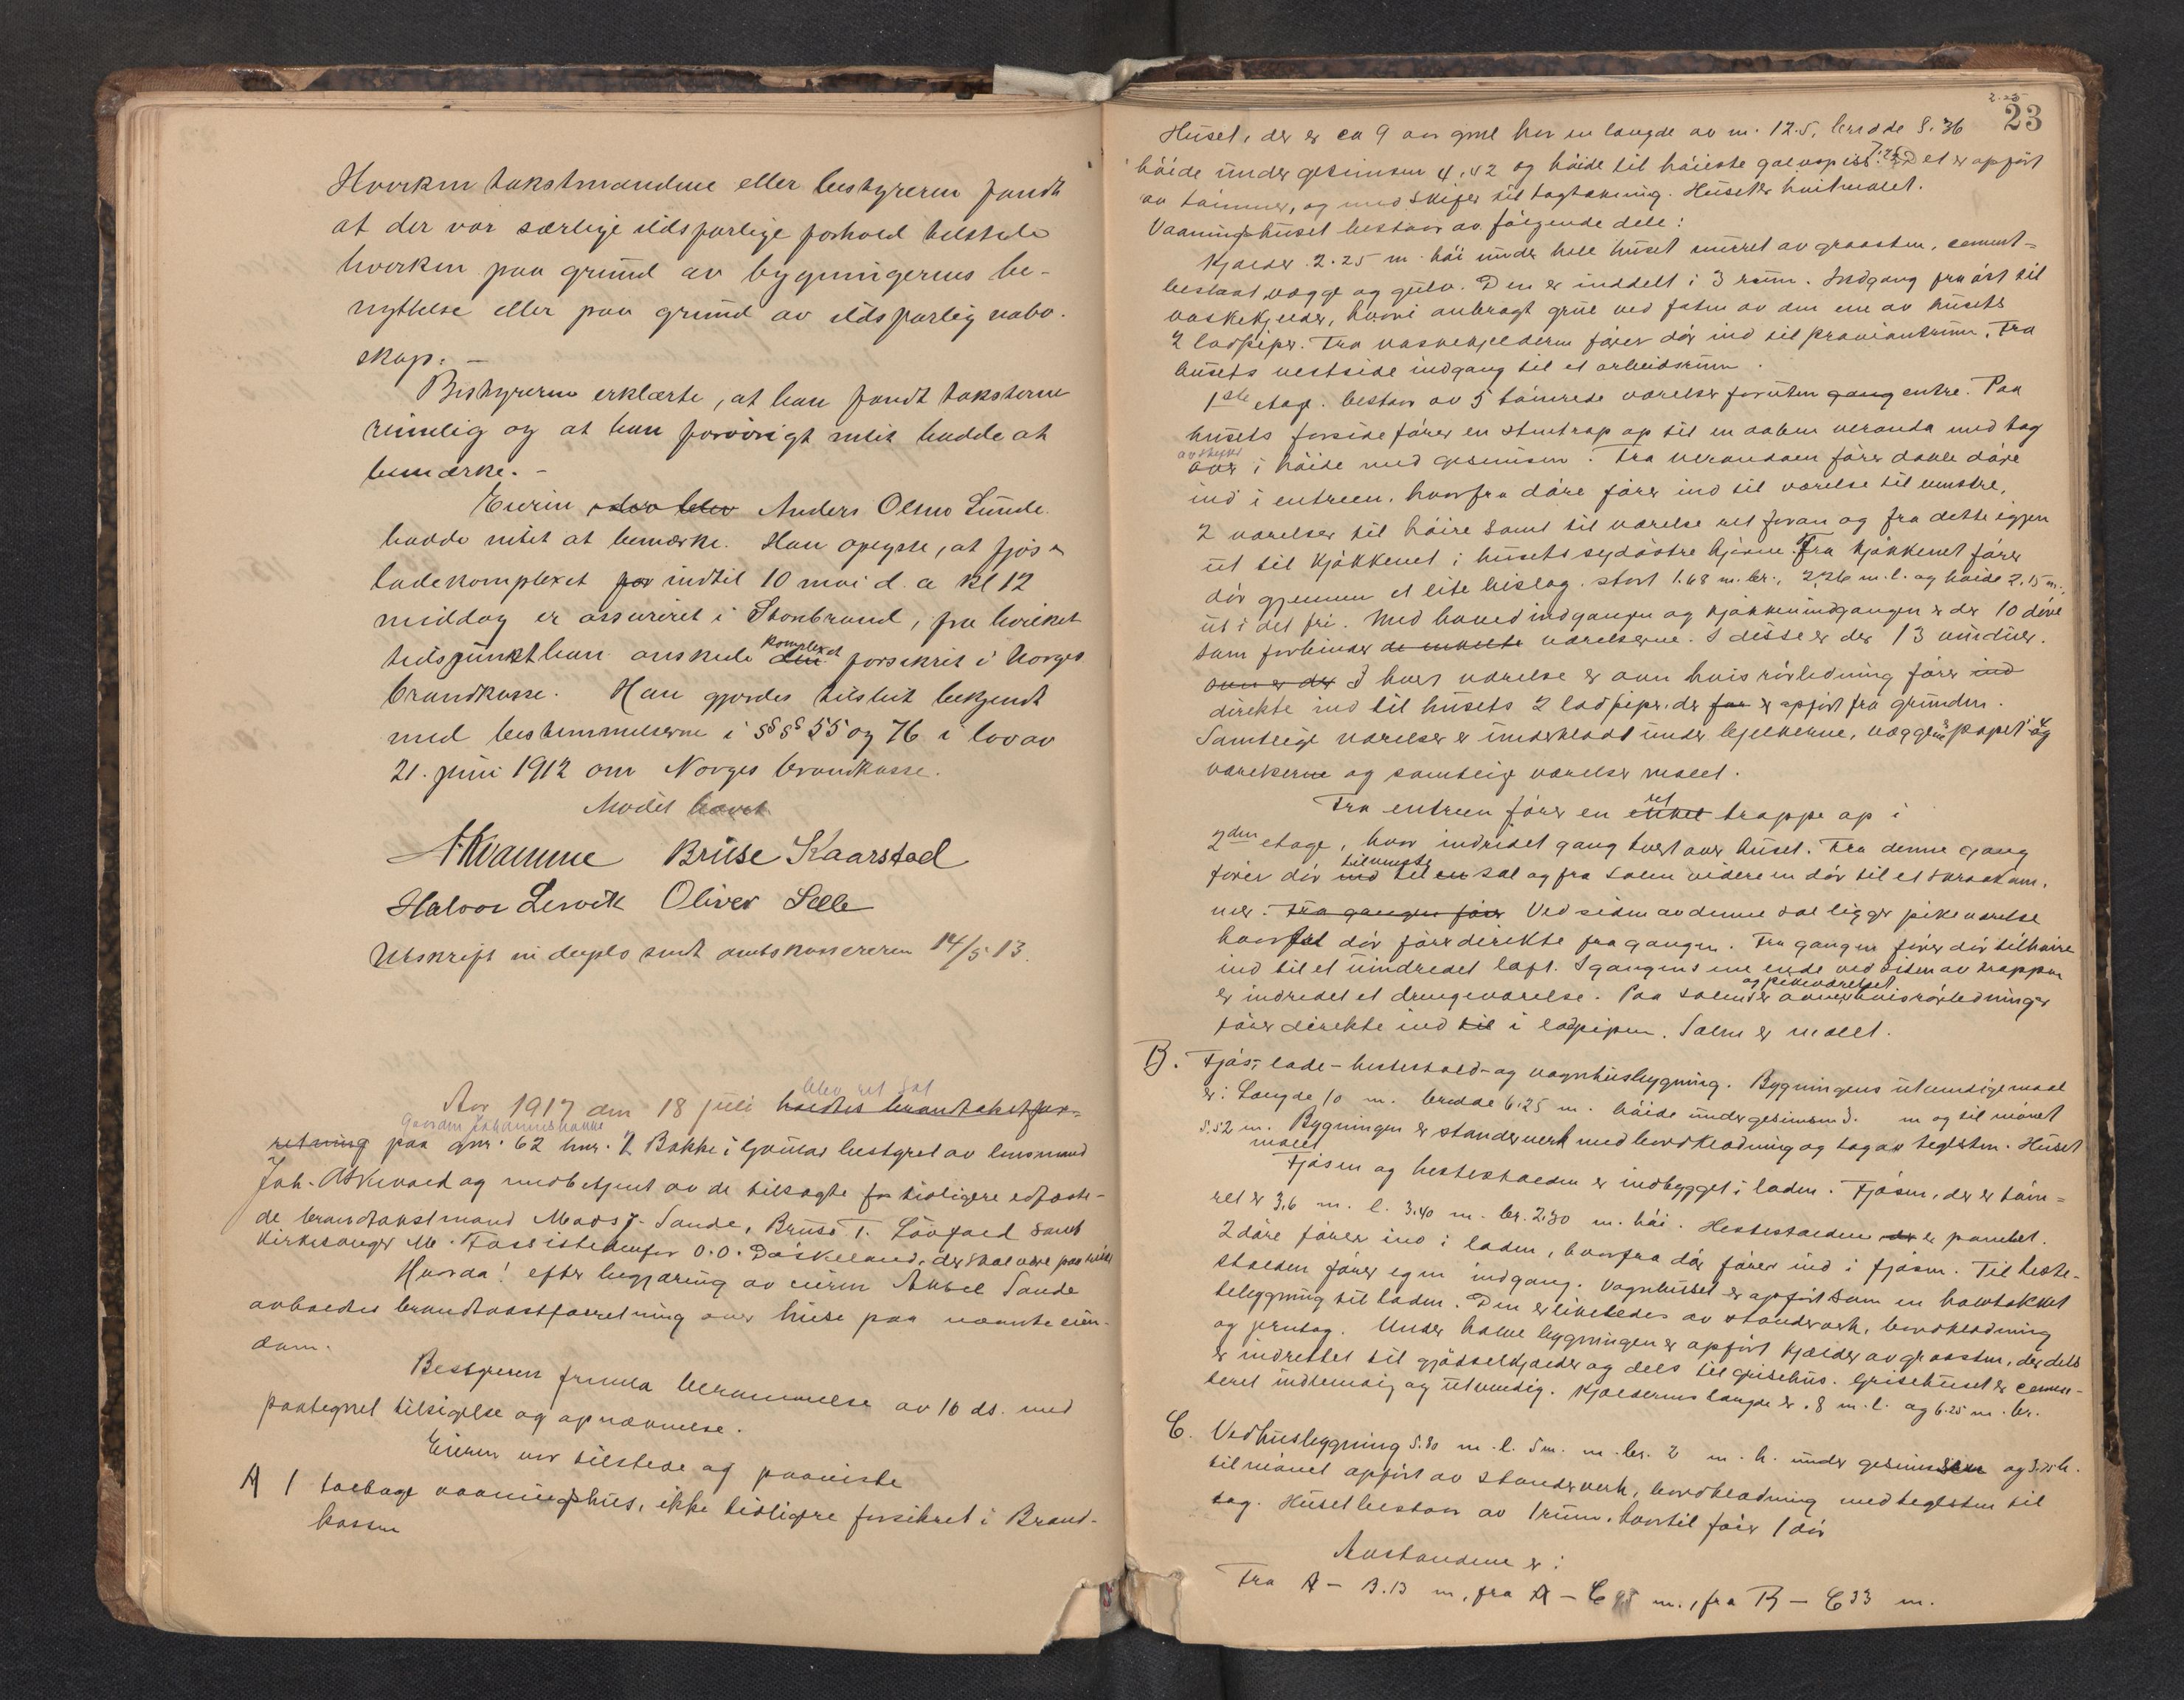 Hverken takstmændene eller bestyreren fandt
at der var særlige ildsfarlige forhold tilstede
hverken paa grund av bygningernes be-
nyttelse eller paa grund av ildsfarlig nabo-
skap. -
Bestyreren erklærte, at han fandt taksterne
rimelig og at han forøvrigt intet hadde at
bemærke. -
Eieren der blev Anders Olsen Sunde
hadde intet at bemærke. Han oplyste, at fjøs &
ladekomplexet for indtil 10 mai d. a kl 12
middag er assureret i Storebrand, fra hvilket
komplexet
tidspunkt han ønskede den forsikret i Norges
brandkasse. Han gjordes tilslut bekjendt
med bestemmelserne i §§§ 55 og 76 i lov av
21. juni 1912 om Norges brandkasse.
Mødet hævet
A Kvamme Brüse Skaarstad
Halvor Lervik Oliver Selle
Utskrift in duplo sendt amtskassereren 14/5 13.
blev ret sat
Aar 1917 den 18 juli holdtes brandtakstfor-
Gaarden Johanneshakke
retning paa gnr. 62 bnr. 2 Bakke i Gaular bestyret av lensmand
Joh. Askevold og medbetjent av de tilsagte for tidligere edfæste-
de brandtakstmænd Mads J. Sande, Bruse T. Løvfald samt
kirkesanger M. Foss istedenfor O. O. Døskeland, der skal være paa
Hvorda! efter begjæring av eieren Aksel Sande
avholdes brandtakstforretning over huse paa nævnte eien-
dom.
Bestyreren fremla berammelse av 10 ds. med
paategnet tilsigelse og opnævnelse.
Eieren var tilstede og paaviste
A 1 toetages vaaningshus, ikke tidligere forsikret i Brand-
kassen
23
Huset, der er ca 9 aar gml har en længde av m. 12.5, bredde 8.36
høide under gesimsen 4,42 og høide til høieste gavlspiss 7.25. Det er opført
av tømmer, og med skifer til tagtækning. Huset er hvitmalet.
Vaaningshuset bestaar av følgende dele:
Kjælder 2.25 m. høi under hele huset muret av graasten, cement-
beslaat vægge og gulv. Den er inddelt i 3 rum. Indgang fra øst til
vaskekjelder, hvori anbragt grue ved foten av den ene av husets
2 ladpiper. Fra vaskekjelderen fører dør ind til proviantrum. Fra
husets vestside indgang til et arbeidsrum.
1ste etage. bestaar av 5 tømrede værelser foruten gang entre. Paa
husets forside fører en stentrap op til en aaben veranda med tag
av skifer
over i høide med gesimsen. Fra verandaen fører doble døre
ind i entreen, hvorfra døre fører ind til værelse til venstre,
2 værelser til høire samt til værelse ret foran og fra dette igjen
ut til kjøkkenet i husets sydøstre hjørne. Fra kjøkkenet fører
dør gjennem et lite bislag, stort 1.68 m. br., 2,26 m. l. og høide 2.15 m.,
ut i det fri. Med hovedindgangen og kjøkkenindgangen er der 10 døre
som forbinder de enkelte værelserne. I disse er der 13 vinduer.
ovn er der I hvert værelse er ovn hvis rørledning fører ind
direkte ind til husets 2 ladpiper, der for er opført fra grunden.
Samtlige værelser er underklædt under bjelkerne, væggene papet og
værelserne og samtlige værelser malet.
ret
Fra entreen fører en enkel trappe op i
2den etage, hvor indredet gang tvert over huset. Fra denne gang
tilvenstre
fører dør ind til en sal og fra salen videre en dør til et skraakam-
mer. Fra gangen fører Ved siden av denne sal ligger pikeværelse
hvortil dør fører direkte fra gangen. Fra gangen fører dør tilhøire
ind til et uindredet loft. I gangens ene ende ved siden av trappen
og pikeværelset
er indredet et drengeværelse. Paa salen er ovner hvis rørledninger
fører direkte ind til i ladpipen. Salen er malet.
B. Fjøs, lade- hestestald- og vognhusbygning. Bygningens utvendige maal
er: Længde 10 m. bredde 6.25 m. høide under gesimsen 3. m og til mønet
5.52 m. Bygningen er standerverk med bordklædning og tag av teglsten. Huset
malet
Fjøsen og hestestalden er indbygget i laden. Fjøsen, der er tøm-
ret er 3,6 m. l. 3.40 m. br. 2.30 m. høi. Hestestalden der er panelet.
2 døre fører ind i laden, hvorfra dør fører ind i fjøsen. Til heste-
stalden fører egen indgang. Vognhuset er opført som en halvtakket
tilbygning til laden. Den er likeledes av standerverk, bordklædning
og jerntag. Under halve bygningen er opført kjælder av graasten, der dels
er indrettet til gjødselkjælder og dels til grisehus. Grisehuset er cemen-
teret indvendig og utvendig. Kjælderens længde er 8 m. l. og 6.25 m. br.
C. Vedhusbygning 5.80 m. l. 5 m. m. br. 2 m. h. under gesimsen og 3.75 h.
til mønet opført av standerverk, bordklædning med teglsten til
tag. Huset bestaar av 1 rum, hvortil fører 1 dør
Avstandene er:
Fra A - B. 13 m, fra A - C 25 m., fra B - C 33 m.